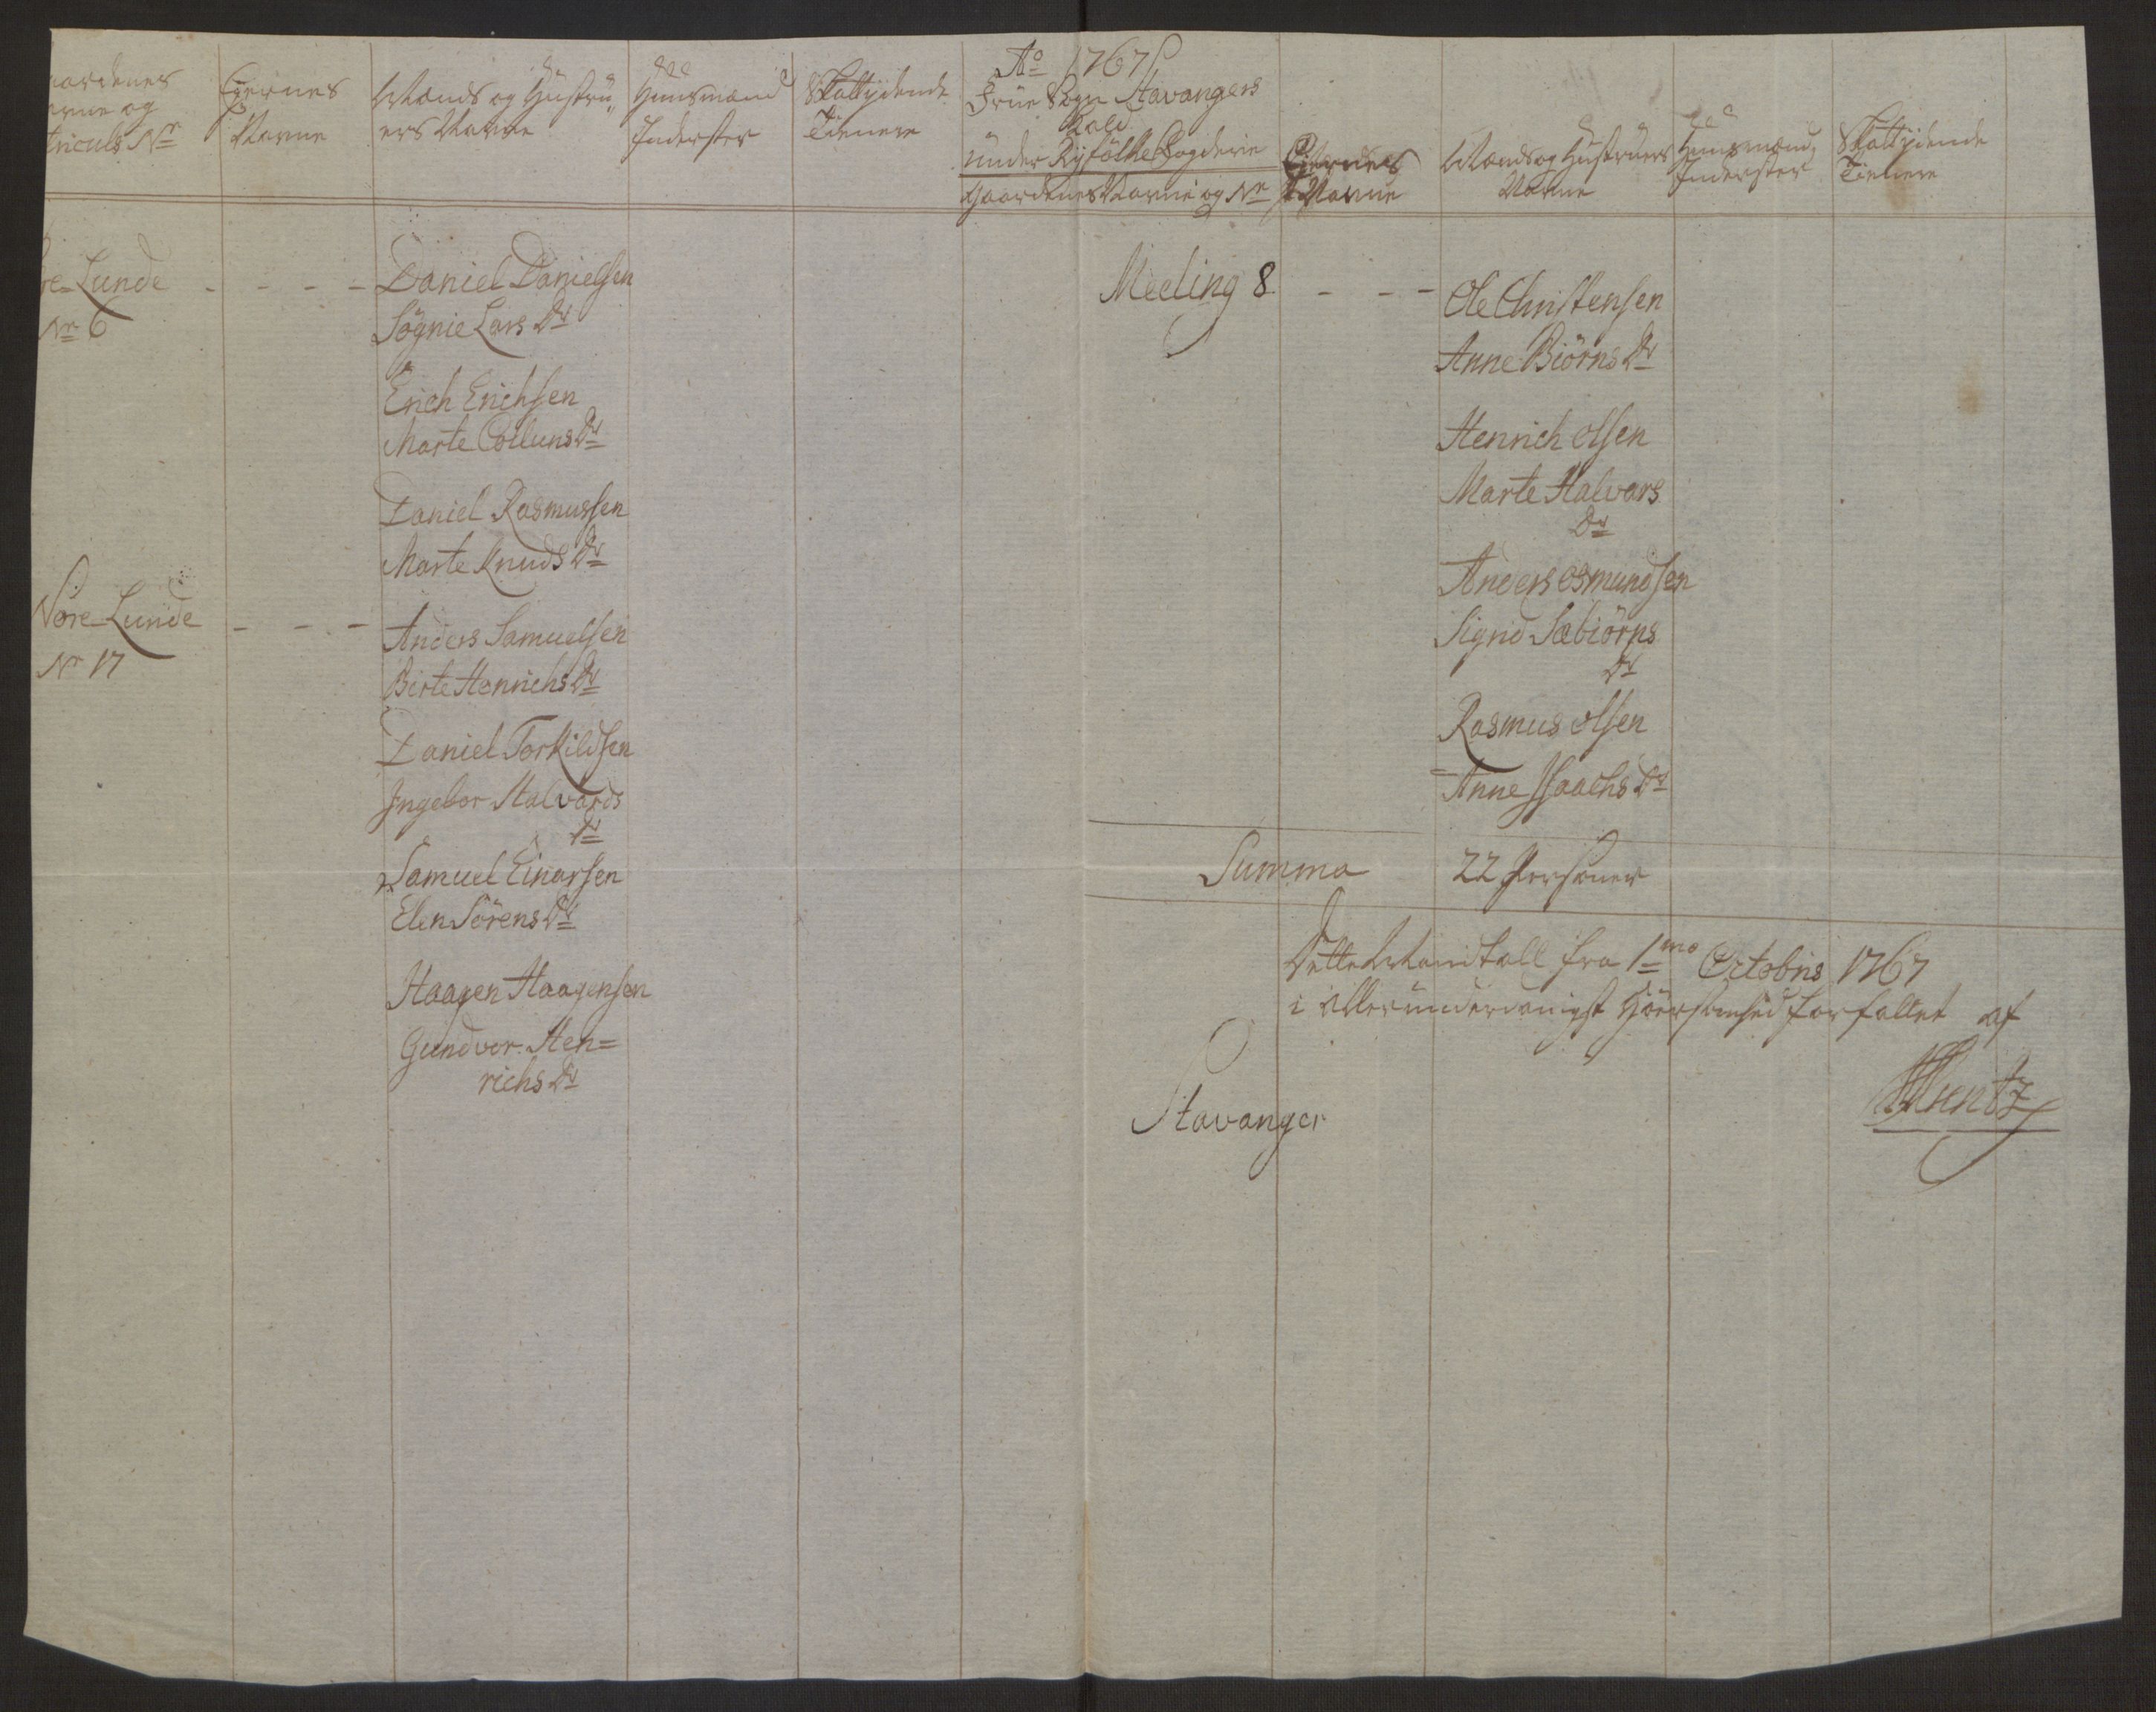 aardenes
avne og
triculs Nr
Eyernes
Navne
Mands og Hustrü„
ers Navne
Huusmænd
Inderster
Skattydende
Tienere
Ao 1767
Früe Sogn Stavangers
Kald
under Ryfölke Fogderie
Gaardenes Navne og Nr
Eyernes
Navne
Mands og Hustruers
Navne
Huusmænd,
Inderster
Skattydende
Tienere
re=Lunde - - - - Daniel Danielsen
Nr 6
Sögnie Lars Dr
Erich Erichsen
Marte Colluns Dr
Daniel Rasmussen
Marte Knuds Dr
Nore=Lunde - - - Anders Samuelsen
Nr 17
Birte Henrichs Dr
Daniel Torkildsen
Ingebor Halvards
Dr
Samuel Einarsen
Elen Sörens Dr
Haagen Haagensen
Gundvor Hen=
richs Dr
Meeling 8 - - - Ole Christensen
Anne Biörns Dr
Henrich Olsen
Marte Halvars
Dr
Anders Osmundsen
Sigrid Sæbiörns
Dr
Rasmus Olsen
Anne Isaachs Dr
Summa 22 Personer
Dette Mandtall fra 1mo Octobris 1767
i allerunderdanigst Hörsomhed forfattet af
Stavanger
Muntz